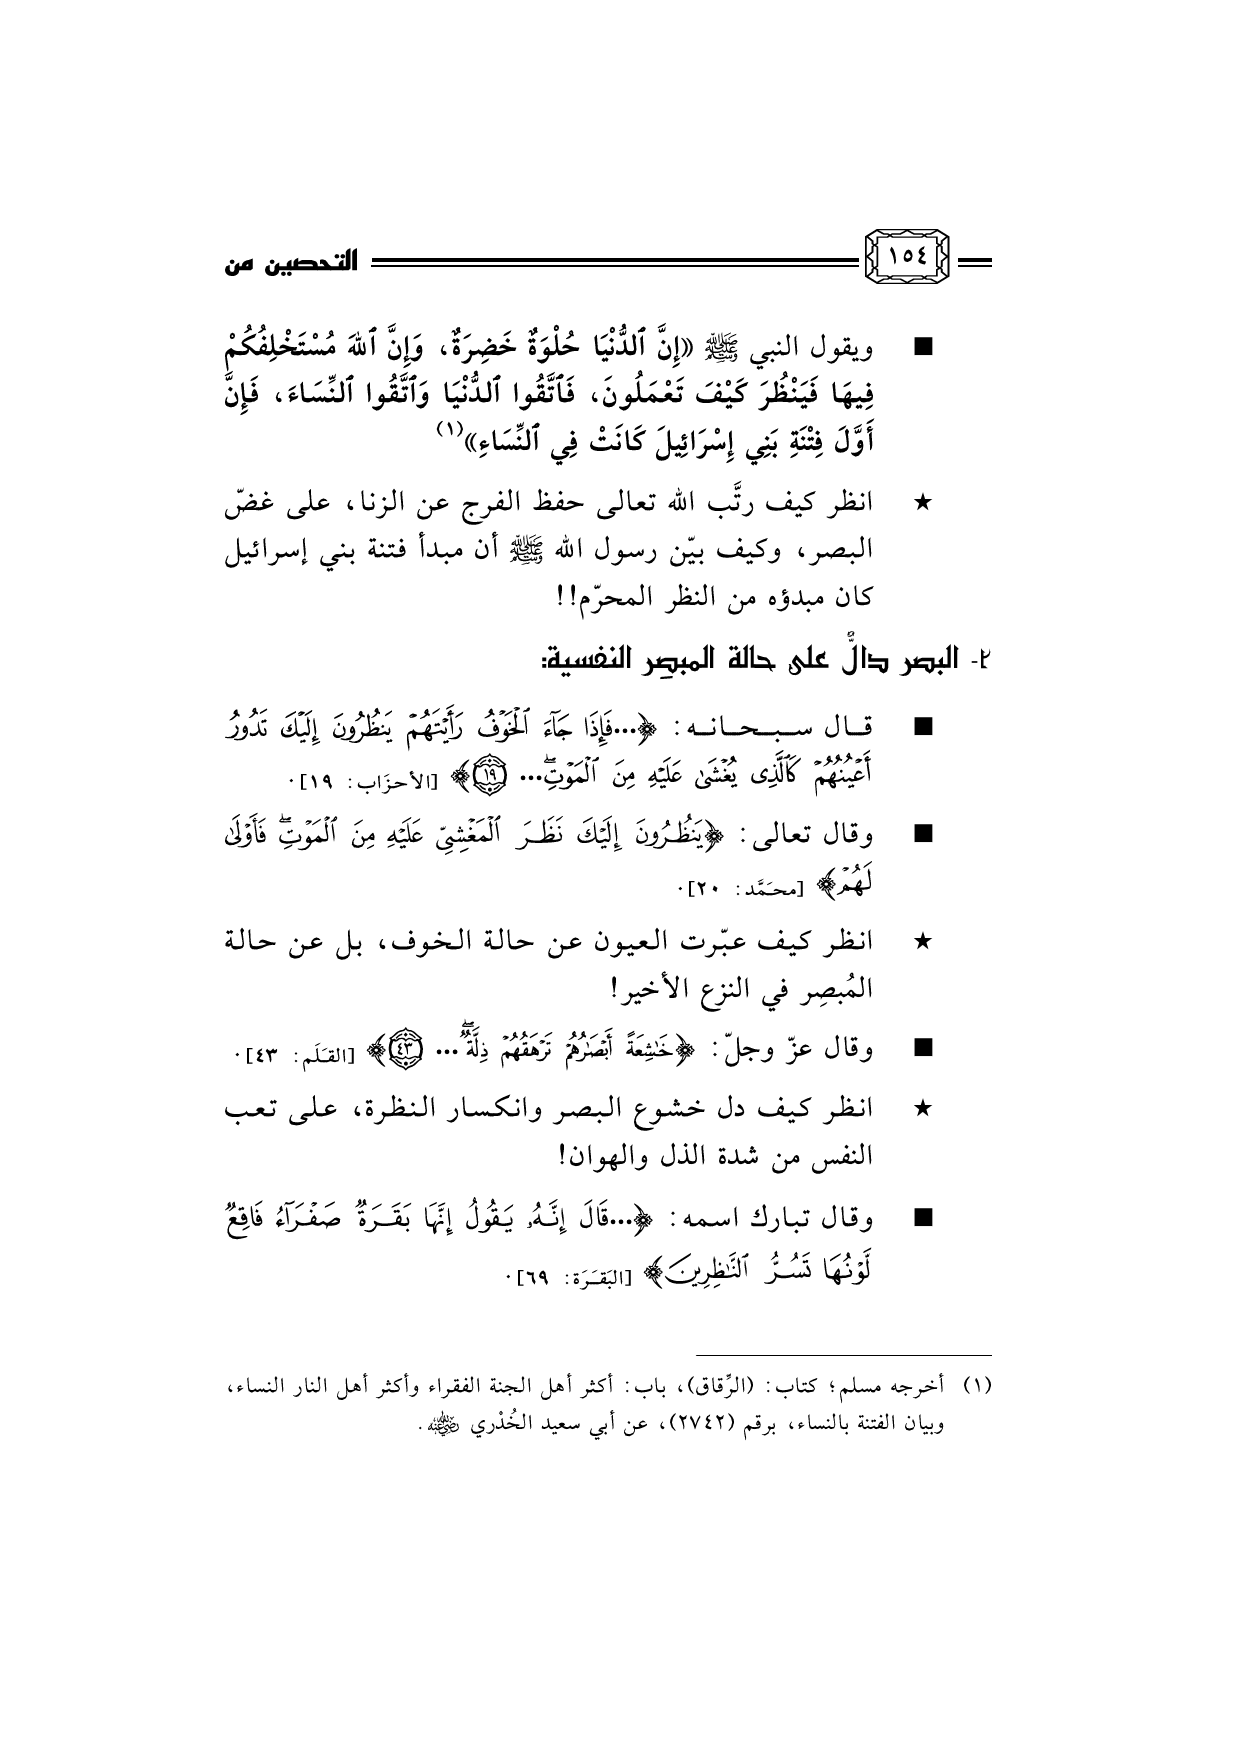 ١٥٤ التحصين من
■ ويقول النبي ﷺ «إِنَّ ٱلدُّنْيَا حُلْوَةٌ خَضِرَةٌ، وَإِنَّ ٱللهَ مُسْتَخْلِفُكُمْ
فِيهَا فَيَنْظُرَ كَيْفَ تَعْمَلُونَ، فَٱتَّقُوا ٱلدُّنْيَا وَٱتَّقُوا ٱلنِّسَاءَ، فَإِنَّ
أَوَّلَ فِتْنَةِ بَنِي إِسْرَائِيلَ كَانَتْ فِي ٱلنِّسَاءِ»(١)
★ انظر كيف رتَّب الله تعالى حفظ الفرج عن الزنا، على غضّ
البصر، وكيف بيّن رسول الله ﷺ أن مبدأ فتنة بني إسرائيل
كان مبدؤه من النظر المحرّم!!
٢- البصر دالٌّ على حالة المبصر النفسية:
■ قال سبحانه: ﴿...فَإِذَا جَآءَ ٱلْخَوْفُ رَأَيْتَهُمْ يَنظُرُونَ إِلَيْكَ تَدُورُ
أَعْيُنُهُمْ كَٱلَّذِى يُغْشَىٰ عَلَيْهِ مِنَ ٱلْمَوْتِۖ... ١٩﴾ [الأحزَاب: ١٩].
■ وقال تعالى: ﴿يَنظُرُونَ إِلَيْكَ نَظَرَ ٱلْمَغْشِيِّ عَلَيْهِ مِنَ ٱلْمَوْتِۖ فَأَوْلَىٰ
لَهُمْ﴾ [محمَّد: ٢٠].
★ انظر كيف عبّرت العيون عن حالة الخوف، بل عن حالة
المُبصِر في النزع الأخير!
■ وقال عزّ وجلّ: ﴿خَٰشِعَةً أَبْصَٰرُهُمْ تَرْهَقُهُمْ ذِلَّةٌۖ... ٤٣﴾ [القَلَم: ٤٣].
★ انظر كيف دل خشوع البصر وانكسار النظرة، على تعب
النفس من شدة الذل والهوان!
■ وقال تبارك اسمه: ﴿...قَالَ إِنَّهُۥ يَقُولُ إِنَّهَا بَقَرَةٌ صَفْرَآءُ فَاقِعٌ
لَّوْنُهَا تَسُرُّ ٱلنَّٰظِرِينَ﴾ [البَقَرَة: ٦٩].
(١) أخرجه مسلم؛ كتاب: (الرِّقاق)، باب: أكثر أهل الجنة الفقراء وأكثر أهل النار النساء،
وبيان الفتنة بالنساء، برقم (٢٧٤٢)، عن أبي سعيد الخُدْري رضي الله عنه.